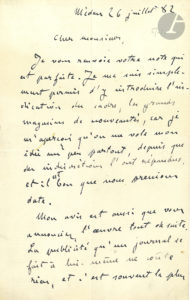 Médan 26 juillet 82
Cher monsieur,
Je vous renvoie votre note qui
est parfaite. Je me suis simple-
ment permis d'y introduire l'in-
dication du cadre, les grands
magasins de nouveautés, car je
m'aperçois qu'on me vole mon
idée un peu partout, depuis que
des indiscrétions l'ont répandue,
et il est bon que nous prenions
date.
Mon avis est aussi que vous
annonciez l'œuvre tout de suite.
La publicité qu'un journal se
fait à lui-même ne coûte
rien, et c'est souvent la plus